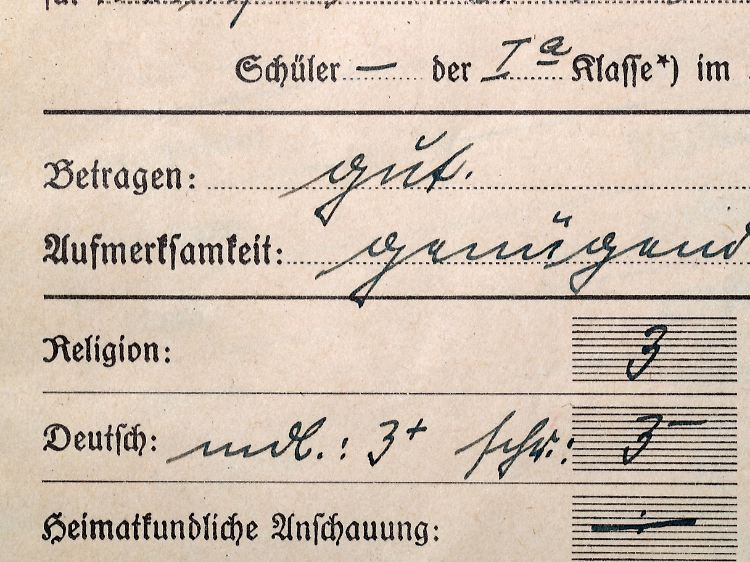 Schüler — der Iª Klasse*) im
Betragen: gut.
Aufmerksamkeit: genügend
Religion: 3
Deutsch: mdl.: 3+ schr.: 3−
Heimatkundliche Anschauung: —